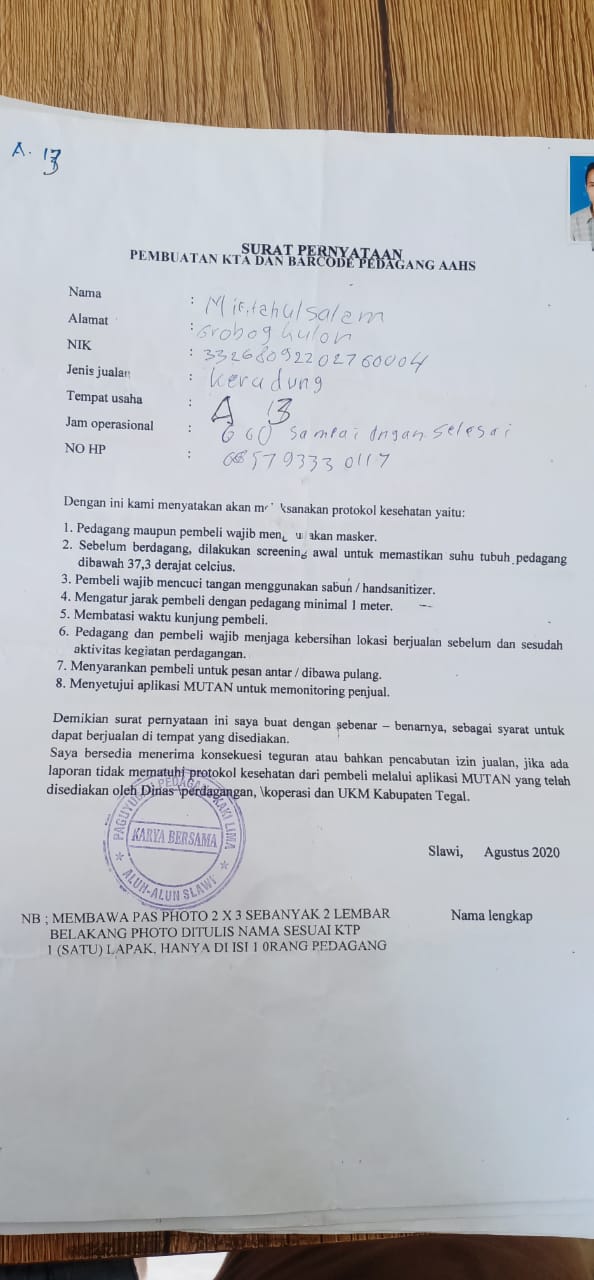 A. 13
SURAT PERNYATAAN
PEMBUATAN KTA DAN BARCODE PEDAGANG AAHS
Nama : Miftahulsalam
Alamat : Grobog kulon
NIK : 33268092202760004
Jenis jualan : keradung
Tempat usaha : A 13
Jam operasional : 600 sampai dngan selesai
NO HP : 085793330117
Dengan ini kami menyatakan akan ksanakan protokol kesehatan yaitu:
1. Pedagang maupun pembeli wajib akan masker.
2. Sebelum berdagang, dilakukan screening awal untuk memastikan suhu tubuh pedagang
dibawah 37,3 derajat celcius.
3. Pembeli wajib mencuci tangan menggunakan sabun / handsanitizer.
4. Mengatur jarak pembeli dengan pedagang minimal 1 meter.
5. Membatasi waktu kunjung pembeli.
6. Pedagang dan pembeli wajib menjaga kebersihan lokasi berjualan sebelum dan sesudah
aktivitas kegiatan perdagangan.
7. Menyarankan pembeli untuk pesan antar / dibawa pulang.
8. Menyetujui aplikasi MUTAN untuk memonitoring penjual.
Demikian surat pernyataan ini saya buat dengan sebenar – benarnya, sebagai syarat untuk
dapat berjualan di tempat yang disediakan.
Saya bersedia menerima konsekuesi teguran atau bahkan pencabutan izin jualan, jika ada
laporan tidak mematuhi protokol kesehatan dari pembeli melalui aplikasi MUTAN yang telah
disediakan oleh Dinas \perdagangan, \koperasi dan UKM Kabupaten Tegal.
PAGUYUBAN PEDAGANG KAKI LIMA
KARYA BERSAMA
ALUN-ALUN SLAWI
Slawi, Agustus 2020
Nama lengkap
NB ; MEMBAWA PAS PHOTO 2 X 3 SEBANYAK 2 LEMBAR
BELAKANG PHOTO DITULIS NAMA SESUAI KTP
1 (SATU) LAPAK, HANYA DI ISI 1 0RANG PEDAGANG